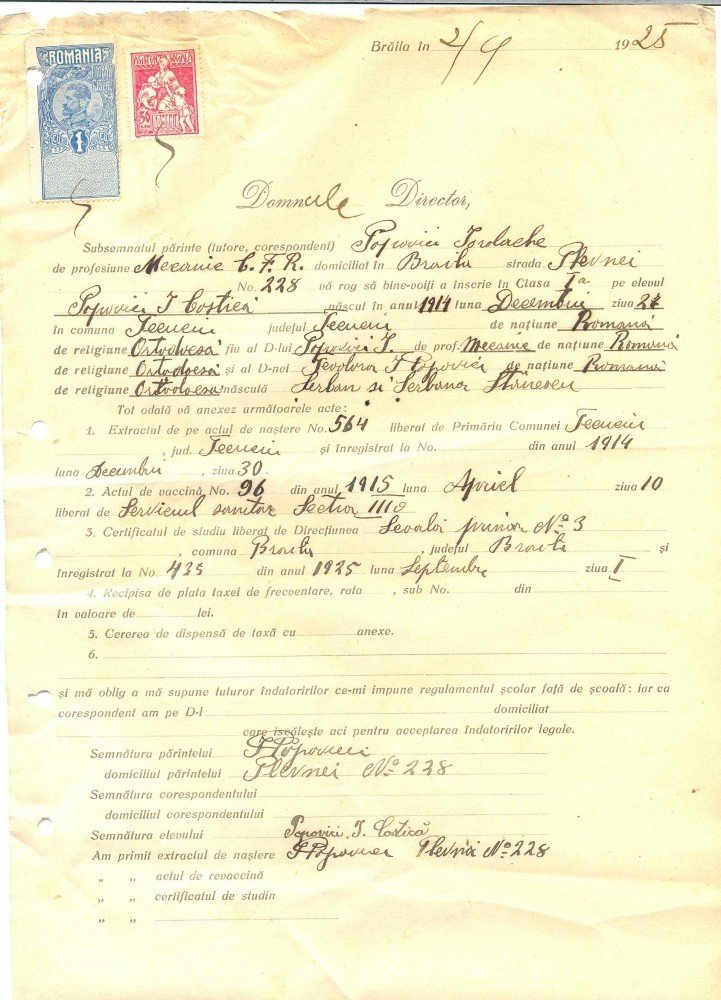 ROMANIA
TIMBRU FISCAL
1
ASISTENTA SOCIALA
50
ROMANIA
Brăila în 2/9 1925
Domnule Director,
Subsemnatul părinte (tutore, corespondent) Popovici Iordache
de profesiune Mecanic C. F. R. domiciliat în Braila strada Plevnei
No. 228 vă rog să bine-voiți a inscrie în Clasa I a pe elevul
Popovici I Costică născut în anul 1914 luna Decembri ziua 27
în comuna Tecuci județul Tecuci de națiune Romană
de religiune Ortodoxă fiu al D-lui Popovici I. de prof. Mecanic de națiune Română
de religiune Ortodoxă și al D-nei Teodora I Popovici de națiune Romană
de religiune Ortodoxa născută Serban si Serbana Stănescu
Tot odată vă anexez următoarele acte:
1. Extractul de pe actul de naștere No. 564 liberat de Primăria Comunei Tecuci
, jud. Tecuci și înregistrat la No. din anul 1914
luna Decembri , ziua 30.
2. Actul de vaccină No. 96 din anul 1915 luna Apriel ziua 10
liberat de Serviciul sanitar Sectia III a
3. Certificatul de studiu liberat de Direcțiunea Scoalei primar No 3
, comuna Braila , județul Braila și
înregistrat la No. 435 din anul 1925 luna Septembre ziua I
4. Recipisa de plata taxei de frecventare, rata , sub No. din
în valoare de lei.
5. Cererea de dispensă de taxă cu anexe.
6.
și mă oblig a mă supune tuturor îndatoririlor ce-mi impune regulamentul școlar față de școală: iar ca
corespondent am pe D-l domiciliat
care iscălește aci pentru acceptarea îndatoririlor legale.
Semnătura părintelui I Popovici
domiciliul părintelui Plevnei No 228
Semnătura corespondentului
domiciliul corespondentului
Semnătura elevului Popovici I. Costică
Am primit extractul de naștere I Popovici Plevnei No 228
„ „ actul de revaccină
„ „ certificatul de studin
„ „